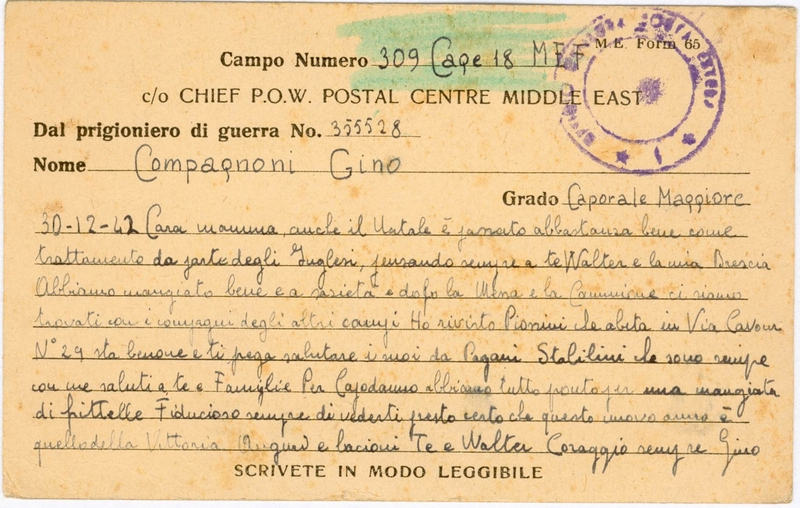 M.E. Form 65
Campo Numero 309 Cage 18 MEF
c/o CHIEF P.O.W. POSTAL CENTRE MIDDLE EAST
Dal prigioniero di guerra No. 355528
Nome Compagnoni Gino
Grado Caporale Maggiore
30-12-42 Cara mamma, anche il Natale è passato abbastanza bene come
trattamento da parte degli Inglesi, pensando sempre a te Walter e la mia Brescia
Abbiamo mangiato bene e a sazietà e dopo la Messa e la Comunione ci siamo
trovati con i compagni degli altri campi Ho rivisto che abita in Via Cavour
N° 29 sta benone e ti prega salutare i suoi da Pagani Stabilini che sono sempre
con me saluti a te e Famiglie Per Capodanno abbiamo tutto pronto per una mangiata
di frittelle Fiducioso sempre di vederti presto certo che questo nuovo anno è
quello della Vittoria Auguri e bacioni Te e Walter Coraggio sempre Gino
SCRIVETE IN MODO LEGGIBILE